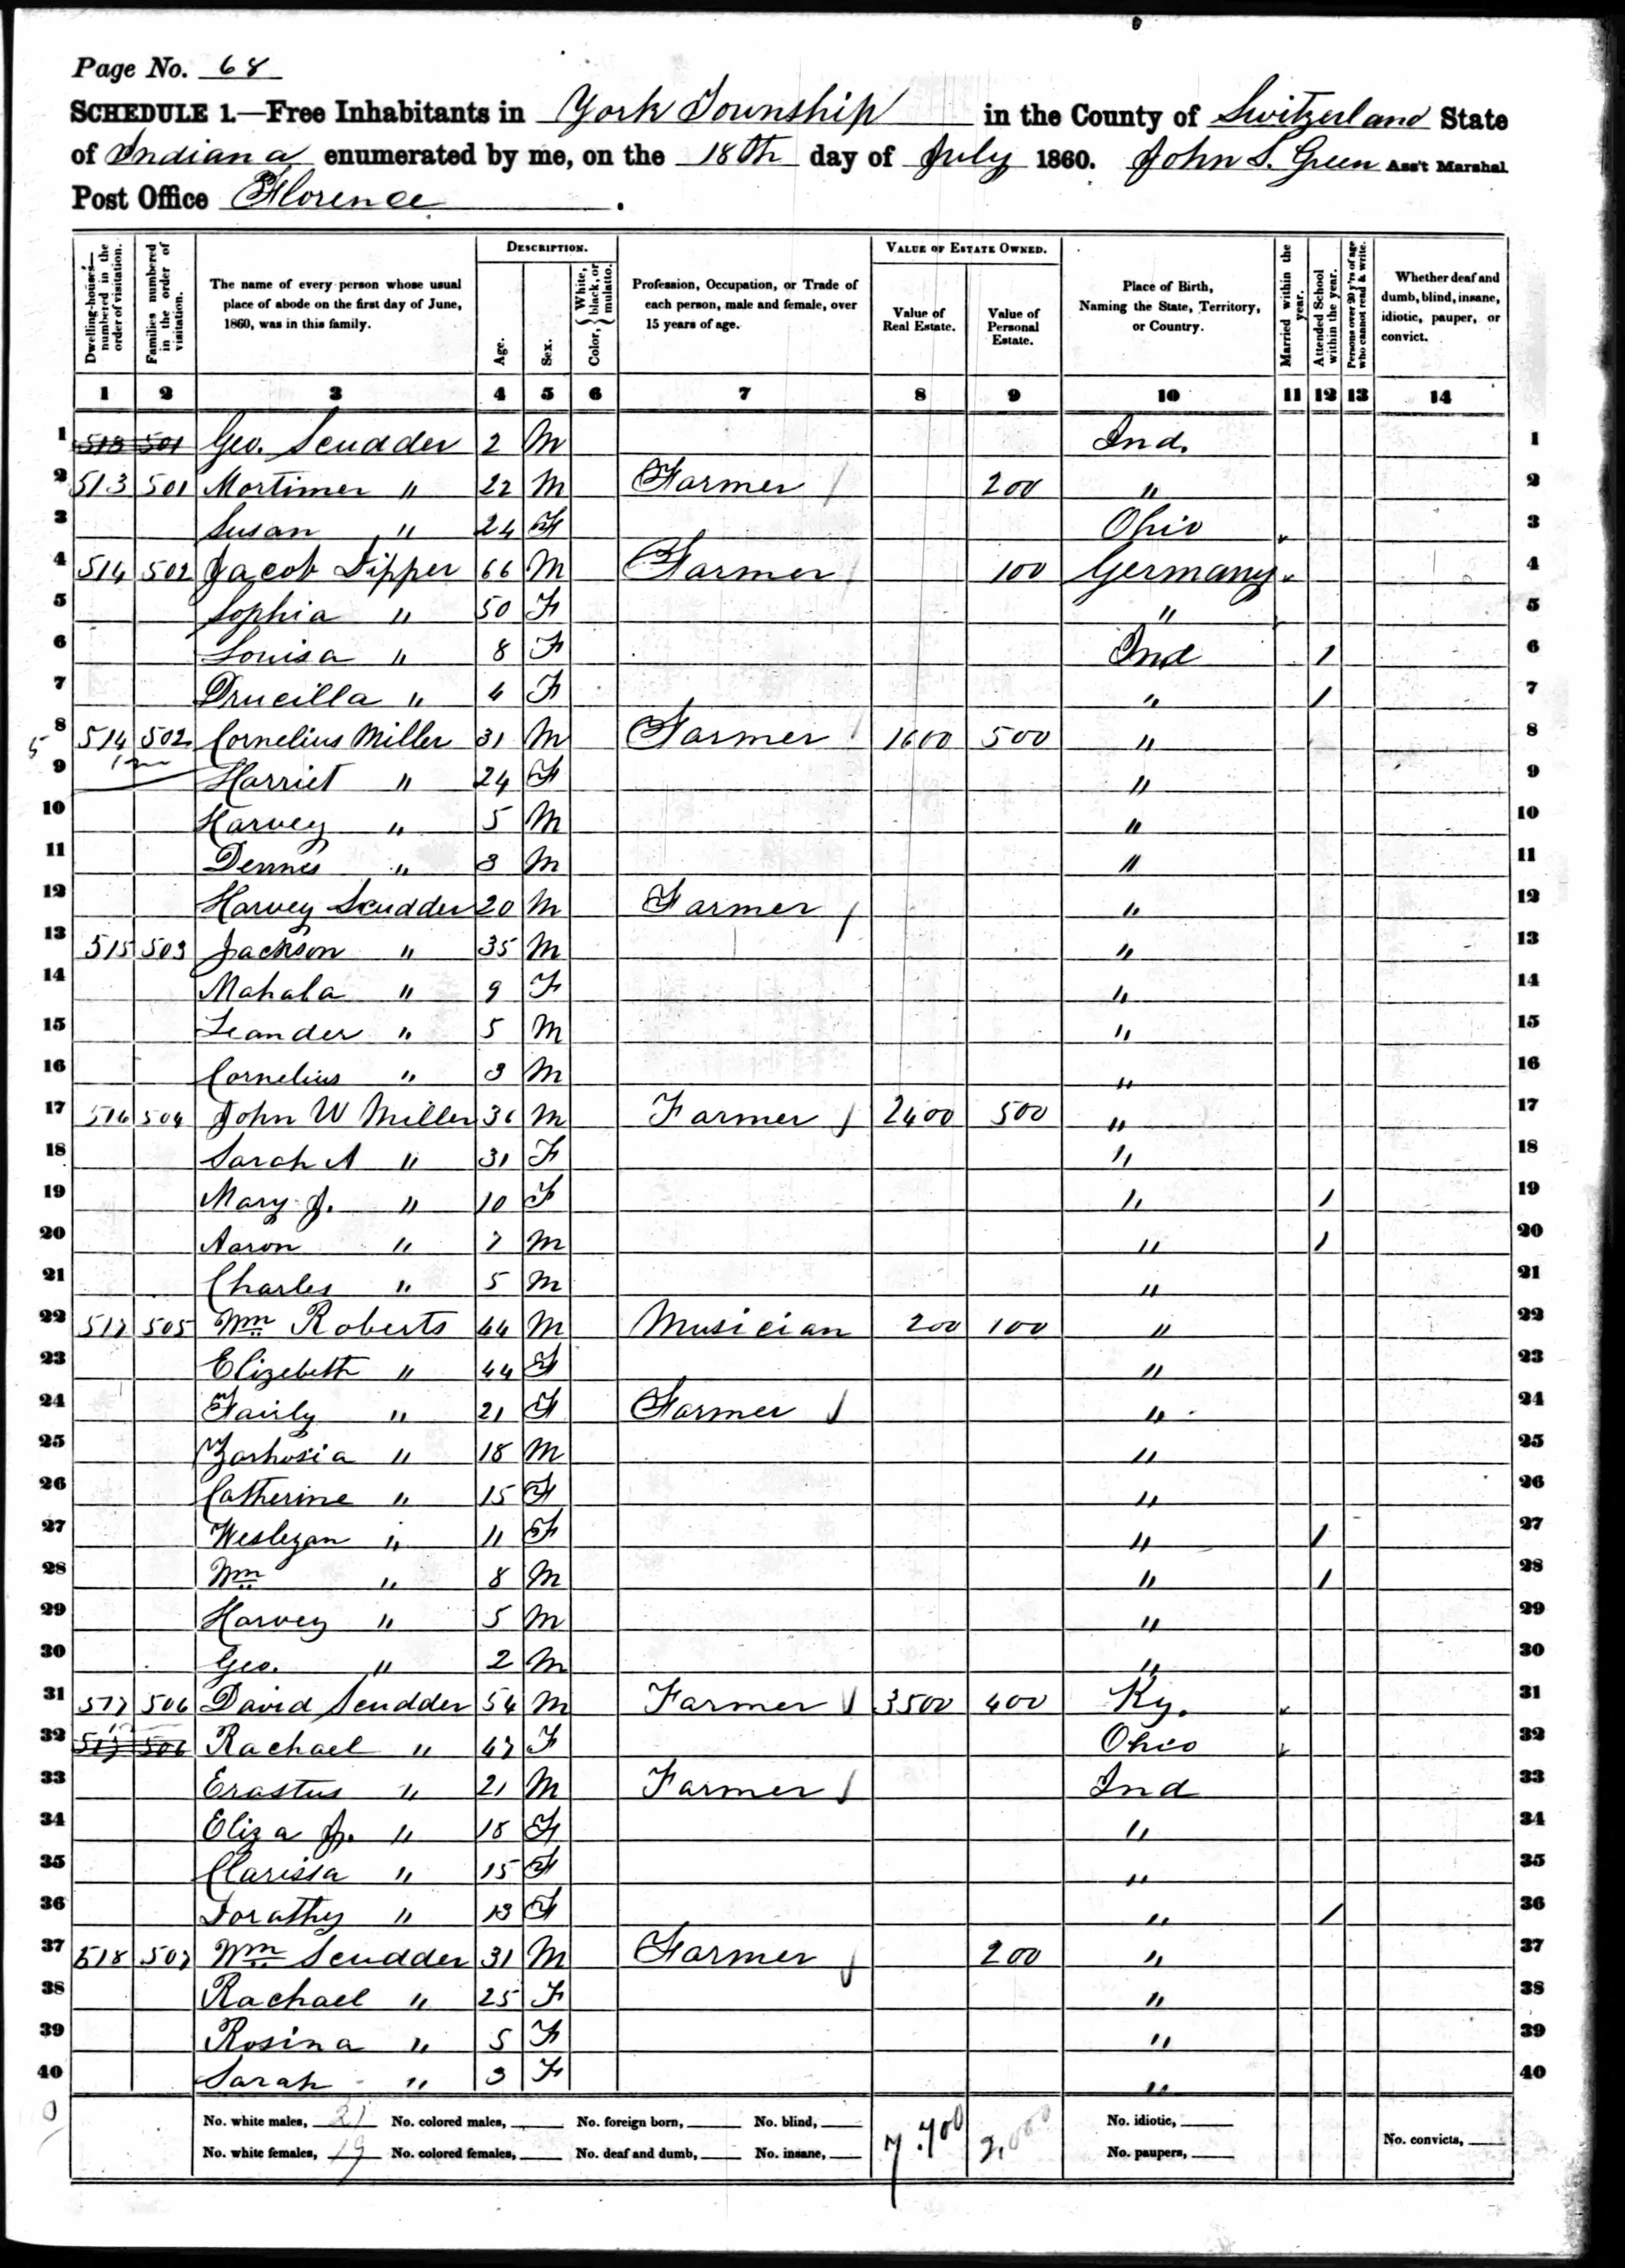 Page No. 68
SCHEDULE 1.—Free Inhabitants in York Township in the County of Switzerland State
of Indiana enumerated by me, on the 18th day of July 1860. John S. Green Ass't Marshal
Post Office Florence.
Dwelling-houses— numbered in the order of visitation. Families numbered in the order of visitation. The name of every person whose usual place of abode on the first day of June, 1860, was in this family. DESCRIPTION. Age. Sex. Color, { White, black, or mulatto. Profession, Occupation, or Trade of each person, male and female, over 15 years of age. VALUE OF ESTATE OWNED. Value of Real Estate. Value of Personal Estate. Place of Birth, Naming the State, Territory, or Country. Married within the year. Attended School within the year. Persons over 20 y'rs of age who cannot read & write. Whether deaf and dumb, blind, insane, idiotic, pauper, or convict.
1 2 3 4 5 6 7 8 9 10 11 12 13 14
1 513 501 Geo. Scudder 2 M Ind. 1
2 513 501 Mortimer " 22 M Farmer / 200 " 2
3 Susan " 24 F Ohio 3
4 514 502 Jacob Dipper 66 M Farmer / 100 Germany 4
5 Sophia " 50 F " 5
6 Louisa " 8 F Ind / 6
7 Drucilla " 4 F " / 7
8 5 514 502 Cornelius Miller 31 M Farmer / 1600 500 " 8
9 Harriet " 24 F " 9
10 Harvey " 5 M " 10
11 Dennes " 3 M " 11
12 Harvey Scudder 20 M Farmer / " 12
13 515 503 Jackson " 35 M " 13
14 Mahala " 9 F " 14
15 Leander " 5 M " 15
16 Cornelius " 3 M " 16
17 516 504 John W Miller 36 M Farmer / 2400 500 " 17
18 Sarah A " 31 F " 18
19 Mary J. " 10 F " / 19
20 Aaron " 7 M " / 20
21 Charles " 5 M " 21
22 517 505 Wm Roberts 44 M Musician 200 100 " 22
23 Elizebeth " 44 F " 23
24 Fairly " 21 F Farmer / " 24
25 " 18 M " 25
26 Catherine " 15 F " 26
27 Wesleyan " 11 F " / 27
28 Wm " 8 M " / 28
29 Harvey " 5 M " 29
30 Geo. " 2 M " 30
31 517 506 David Scudder 54 M Farmer / 3500 400 Ky. 31
32 517 506 Rachael " 47 F Ohio 32
33 Erastus " 21 M Farmer / Ind 33
34 Eliza J. " 18 F " 34
35 Clarissa " 15 F " 35
36 Dorathy " 13 F " / 36
37 518 507 Wm Scudder 31 M Farmer / 200 " 37
38 Rachael " 25 F " 38
39 Rosina " 5 F " 39
40 Sarah " 3 F " 40
No. white males, 21 No. colored males, No. foreign born, No. blind, 7.700 2,000 No. idiotic,
No. white females, 19 No. colored females, No. deaf and dumb, No. insane, No. paupers, No. convicts,